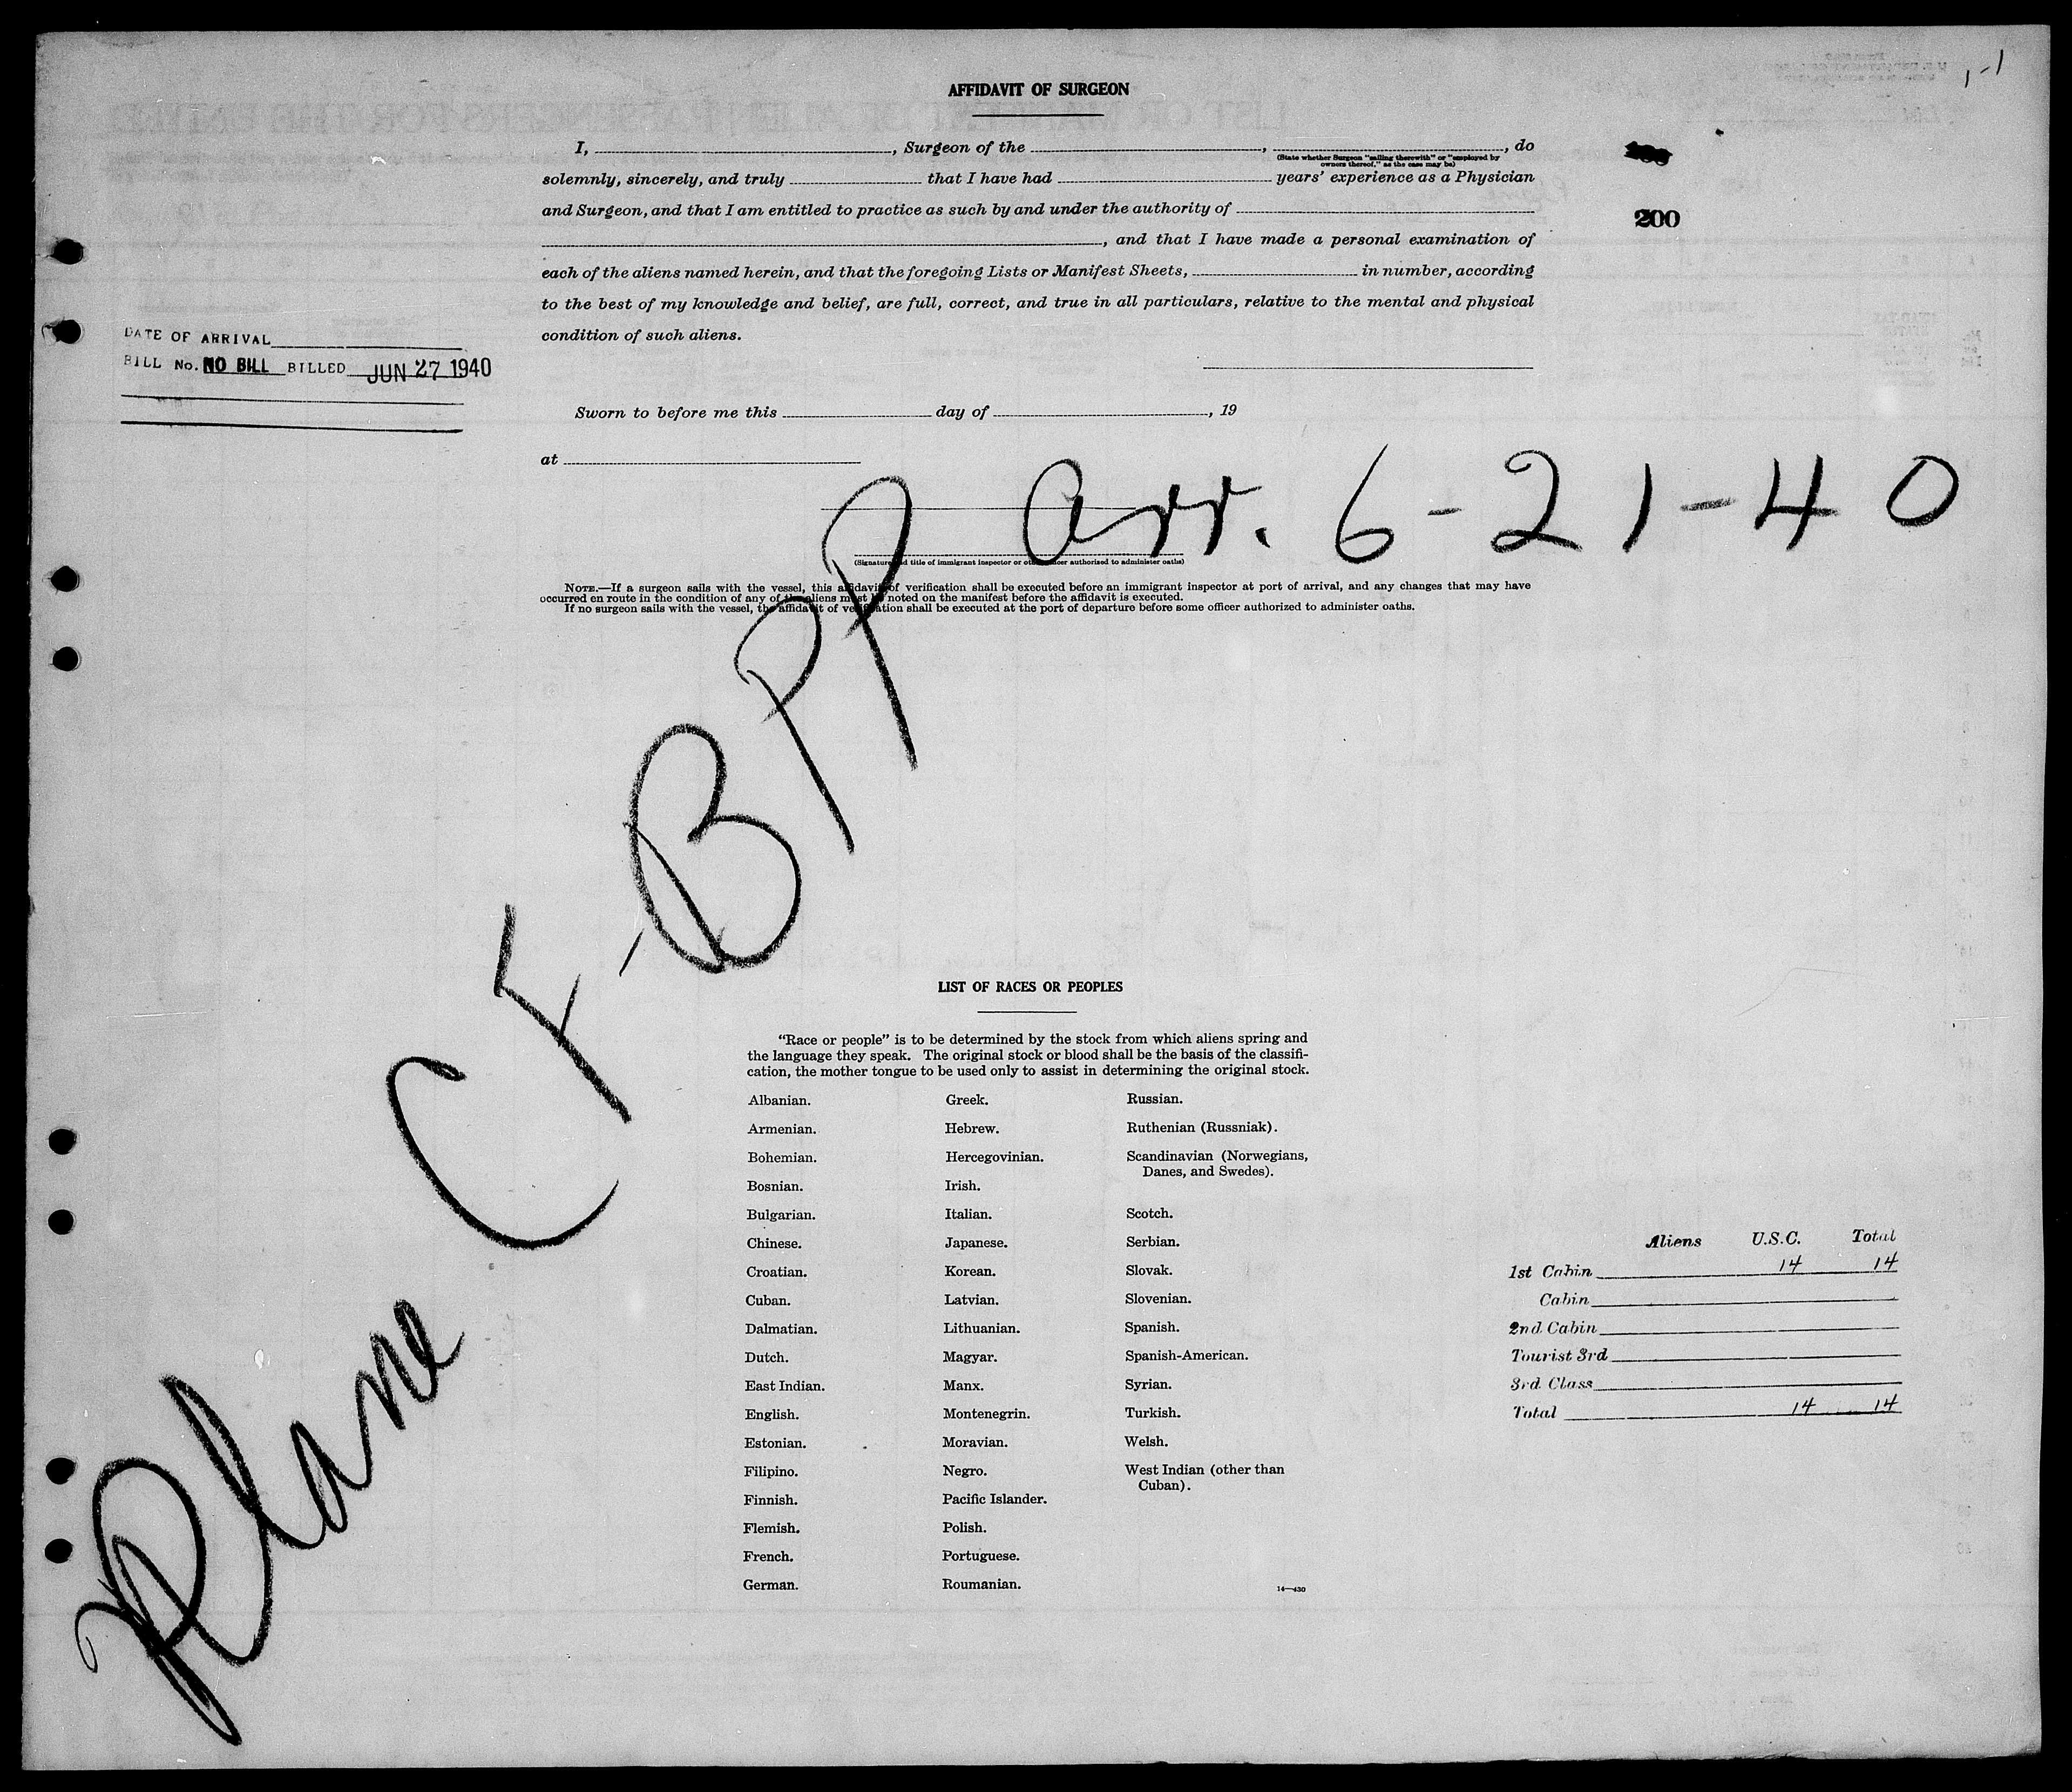 1-1
AFFIDAVIT OF SURGEON
I, , Surgeon of the , , do
(State whether Surgeon "sailing therewith" or "employed by
owners thereof," as the case may be)
solemnly, sincerely, and truly that I have had years' experience as a Physician
and Surgeon, and that I am entitled to practice as such by and under the authority of
200
, and that I have made a personal examination of
each of the aliens named herein, and that the foregoing Lists or Manifest Sheets, in number, according
to the best of my knowledge and belief, are full, correct, and true in all particulars, relative to the mental and physical
condition of such aliens.
DATE OF ARRIVAL
BILL No. NO BILL BILLED JUN 27 1940
Sworn to before me this day of , 19
at
Arr. 6-21-40
(Signature and title of immigrant inspector or other officer authorized to administer oaths)
NOTE.—If a surgeon sails with the vessel, this affidavit of verification shall be executed before an immigrant inspector at port of arrival, and any changes that may have
occurred en route in the condition of any of the aliens must be noted on the manifest before the affidavit is executed.
If no surgeon sails with the vessel, the affidavit of verification shall be executed at the port of departure before some officer authorized to administer oaths.
Plane CF-BPP
LIST OF RACES OR PEOPLES
"Race or people" is to be determined by the stock from which aliens spring and
the language they speak. The original stock or blood shall be the basis of the classifi-
cation, the mother tongue to be used only to assist in determining the original stock.
Albanian.
Armenian.
Bohemian.
Bosnian.
Bulgarian.
Chinese.
Croatian.
Cuban.
Dalmatian.
Dutch.
East Indian.
English.
Estonian.
Filipino.
Finnish.
Flemish.
French.
German.
Greek.
Hebrew.
Hercegovinian.
Irish.
Italian.
Japanese.
Korean.
Latvian.
Lithuanian.
Magyar.
Manx.
Montenegrin.
Moravian.
Negro.
Pacific Islander.
Polish.
Portuguese.
Roumanian.
Russian.
Ruthenian (Russniak).
Scandinavian (Norwegians,
Danes, and Swedes).
Scotch.
Serbian.
Slovak.
Slovenian.
Spanish.
Spanish-American.
Syrian.
Turkish.
Welsh.
West Indian (other than
Cuban).
14—430
Aliens U.S.C. Total
1st Cabin 14 14
Cabin
2nd Cabin
Tourist 3rd
3rd Class
Total 14 14